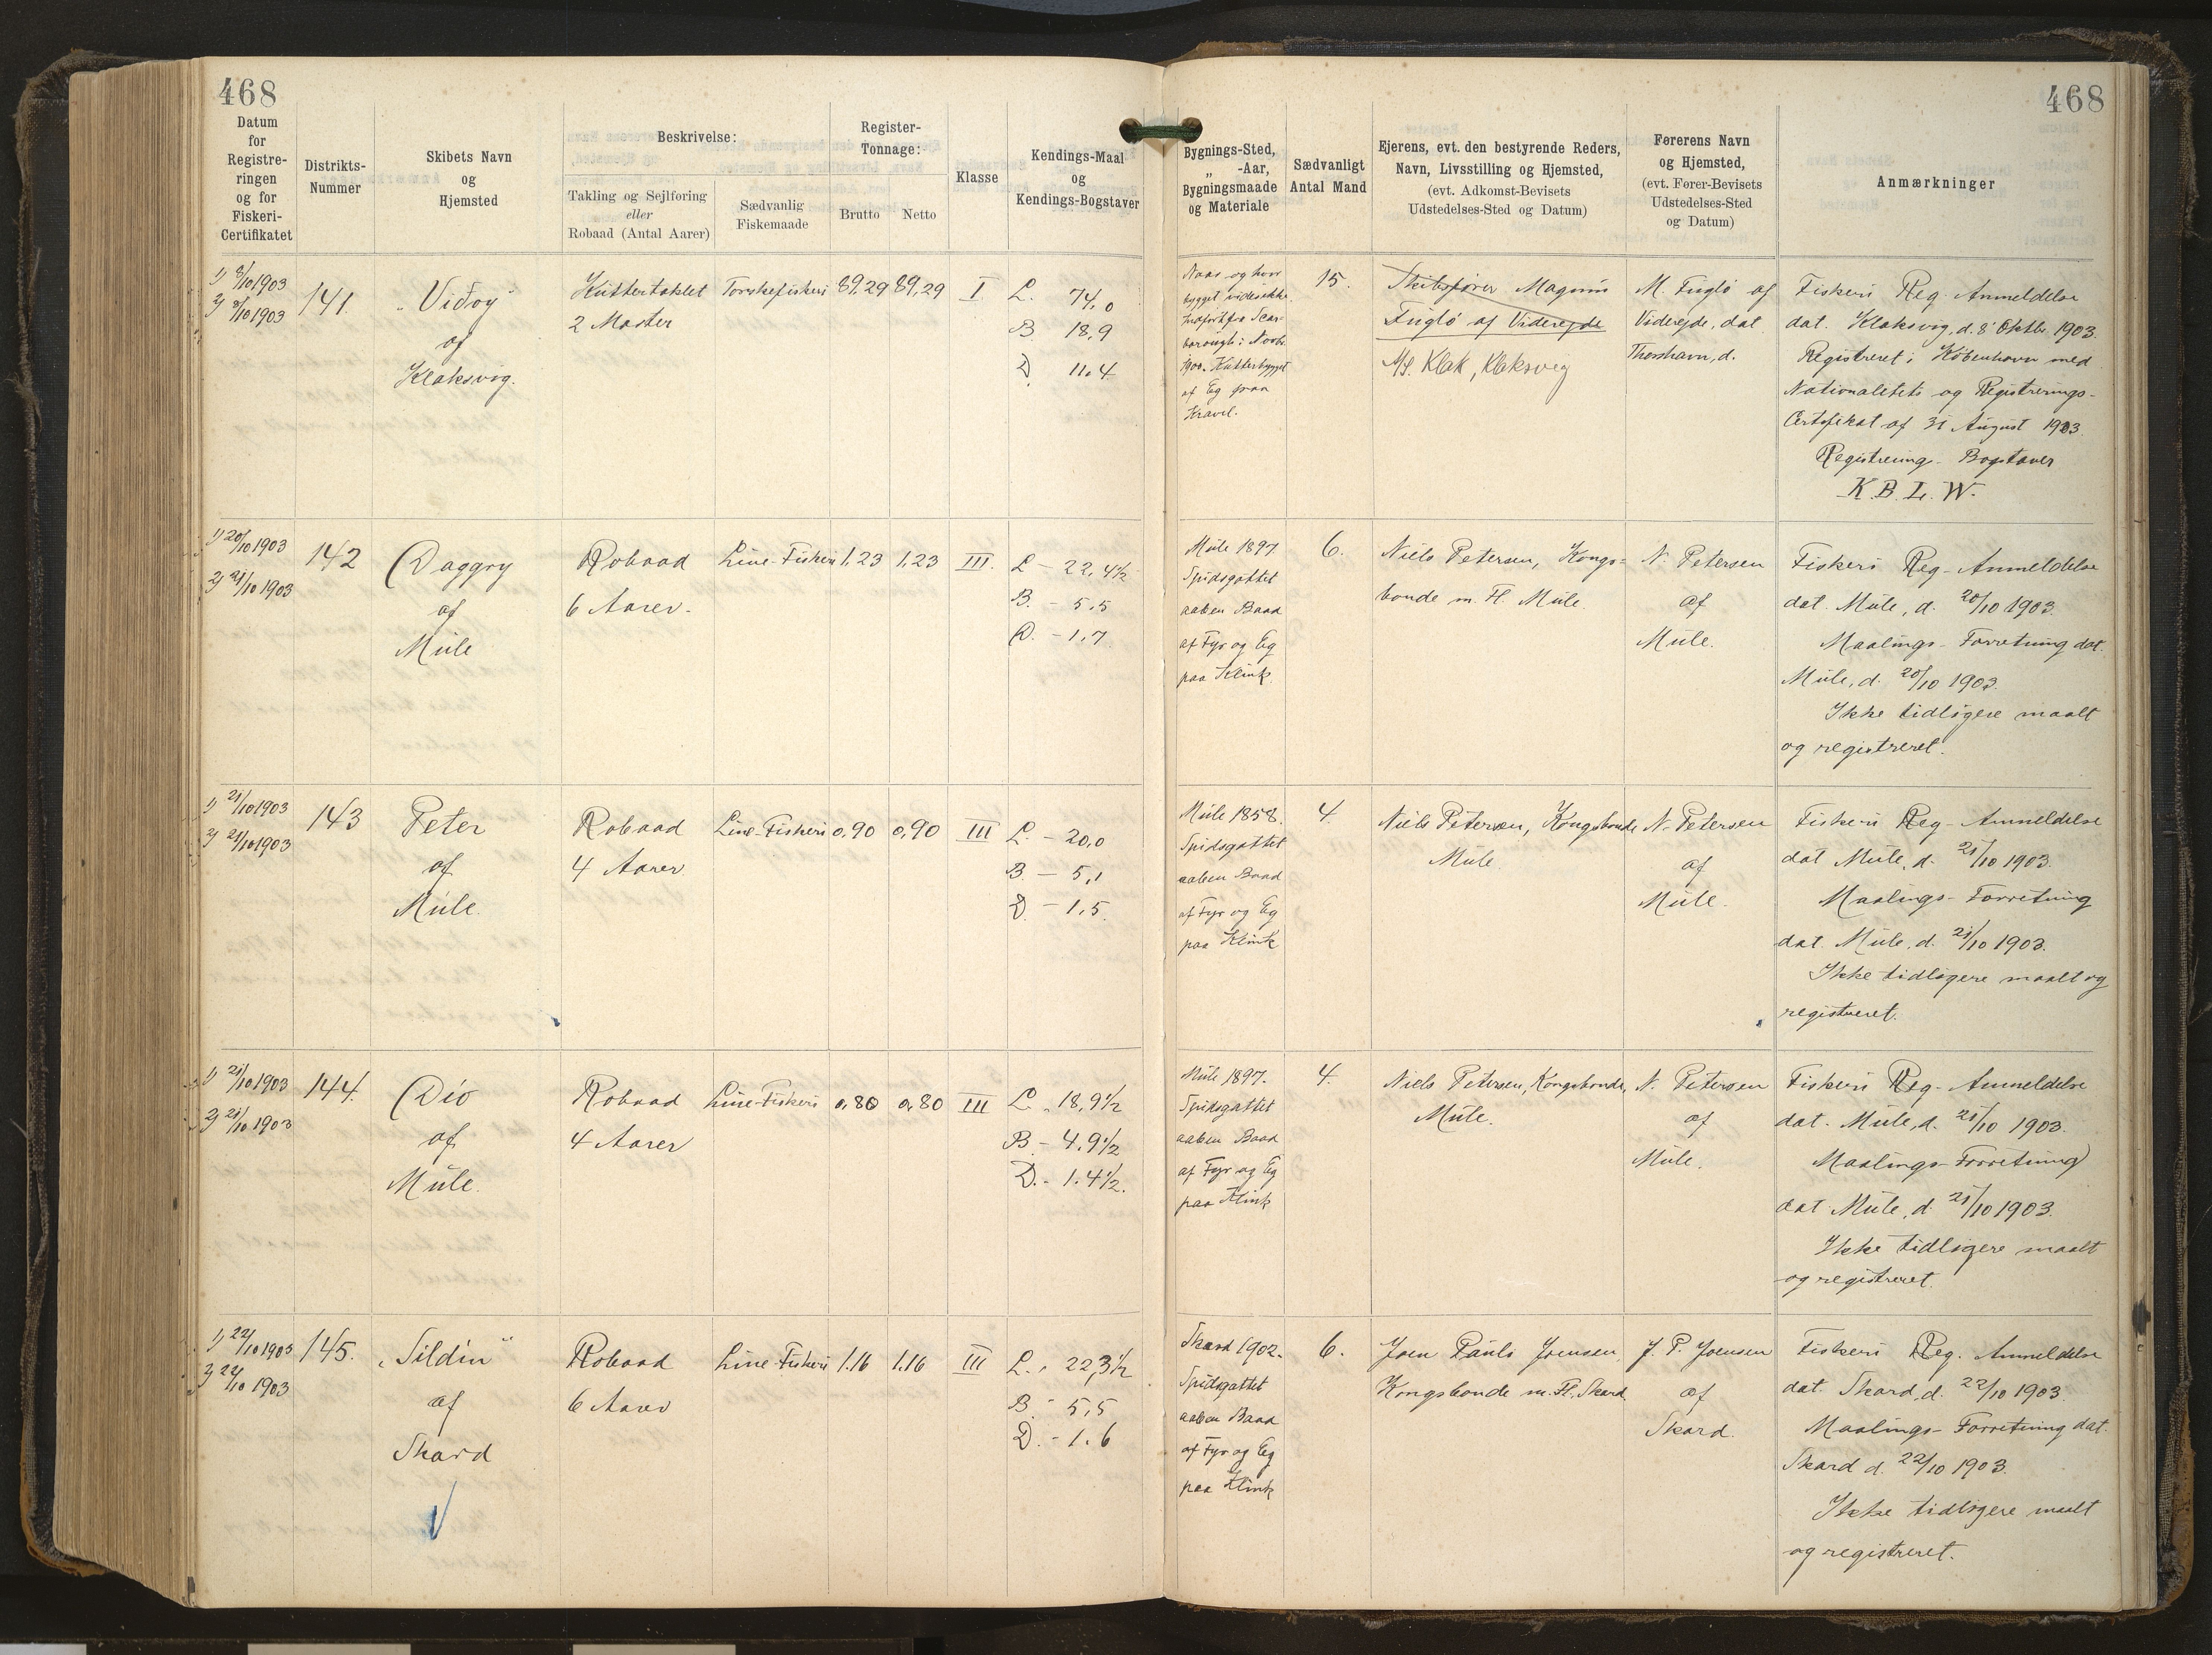 468
468
Datum
for
Registre-
ringen
og for
Fiskeri-
Certifikatet
Distrikts-
Nummer
Skibets Navn
og
Hjemsted
Beskrivelse:
Takling og Sejlføring
eller
Robaad (Antal Aarer)
Sædvanlig
Fiskemaade
Register-
Tonnage:
Brutto
Netto
Klasse
Kendings-Maal
og
Kendings-Bogstaver
Bygnings-Sted,
„ -Aar,
Bygningsmaade
og Materiale
Sædvanligt
Antal Mand
Ejerens, evt. den bestyrende Reders,
Navn, Livsstilling og Hjemsted,
(evt. Adkomst-Bevisets
Udstedelses-Sted og Datum)
Førerens Navn
og Hjemsted,
(evt. Fører-Bevisets
Udstedelses-Sted
og Datum)
Anmærkninger
1) 8/10 1903
2) 8/10 1903
141.
„Vidoy"
of
Klaksvig.
Kuttertaklet
2 Master
Torskefiskeri
89,29
89,29
I
L. 74,0
B 18,9
D. 11.4
Naar og hvor
bygget vides ikke.
Indført fra Scar-
borough i Novbr.
1900. Kutterbygget
af Eg paa
Kravel.
15.
Skibsfører Magnus
Fuglø af Viderejde
A/S. Klak, Klaksvig
M. Fuglø af
Viderejde, dat.
Thorshavn, d.
Fiskeri Reg. Anmeldelse
dat. Klaksvig, d. 8' Oktbr. 1903.
Registreret i København med
Nationalitets og Registrerings-
Certifikat af 31 August 1903.
Registrering- Bogstaver
K. B. L. W.
1) 20/10 1903
2) 21/10 1903
142
Daggry
af
Mule
Robaad
6 Aarer.
Line-Fiskeri
1,23
1,23
III.
L - 22,4 1/2
B. - 5,5
D. - 1,7
Mule 1897.
Spidsgattet
aaben Baad
af Fyr og Eg
paa Klink.
6.
Niels Petersen, Kongs-
bonde m. Fl. Mule.
N. Petersen
af
Mule.
Fiskeri Reg- Anmeldelse
dat. Mule, d. 20/10 1903.
Maalings- Forretning dat.
Mule, d. 20/10 1903.
Ikke tidligere maalt
og registreret.
1) 21/10 1903
2) 21/10 1903
143
Peter
af
Mule.
Robaad
4 Aarer
Line-Fiskeri
0,90
0,90
III
L. - 20,0
B. - 5,1
D. - 1,5.
Mule 1858.
Spidsgattet
aaben Baad
af Fyr og Eg
paa Klink
4
Niels Petersen, Kongsbonde
Mule.
N. Petersen
af
Mule.
Fiskeri Reg- Anmeldelse
dat Mule, d. 21/10 1903.
Maalings- Forretning
dat. Mule, d. 21/10 1903.
Ikke tidligere maalt og
registreret.
1) 21/10 1903
2) 21/10 1903
144.
Dio
af
Mule.
Robaad
4 Aarer
Line-Fiskeri
0,80
0,80
III
L. 18,9 1/2
B - 4.9 1/2
D. - 1.4 1/2.
Mule 1897.
Spidsgattet
aaben Baad
af Fyr og Eg
paa Klink
4.
Niels Petersen, Kongsbonde,
Mule.
N. Petersen
af
Mule.
Fiskeri Reg- Anmeldelse
dat. Mule, d. 21/10 1903.
Maalings- Forretning
dat Mule, d. 21/10 1903.
Ikke tidligere maalt
og registreret.
1) 22/10 1903
2) 22/10 1903
145.
„Sildin"
af
Skard
Robaad
6 Aarer
Line-Fiskeri
1.16
1.16
III
L. - 22,3 1/2
B. - 5,5
D. - 1.6
Skard 1902.
Spidsgattet
aaben Baad
af Fyr og Eg
paa Klink
6.
Joen Pauls Joensen,
Kongsbonde m. Fl. Skard
J. P. Joensen
af
Skard.
Fiskeri Reg. Anmeldelse
dat. Skard, d. 22/10 1903.
Maalings- Forretning dat.
Skard d. 22/10 1903.
Ikke tidligere maalt
og registreret.